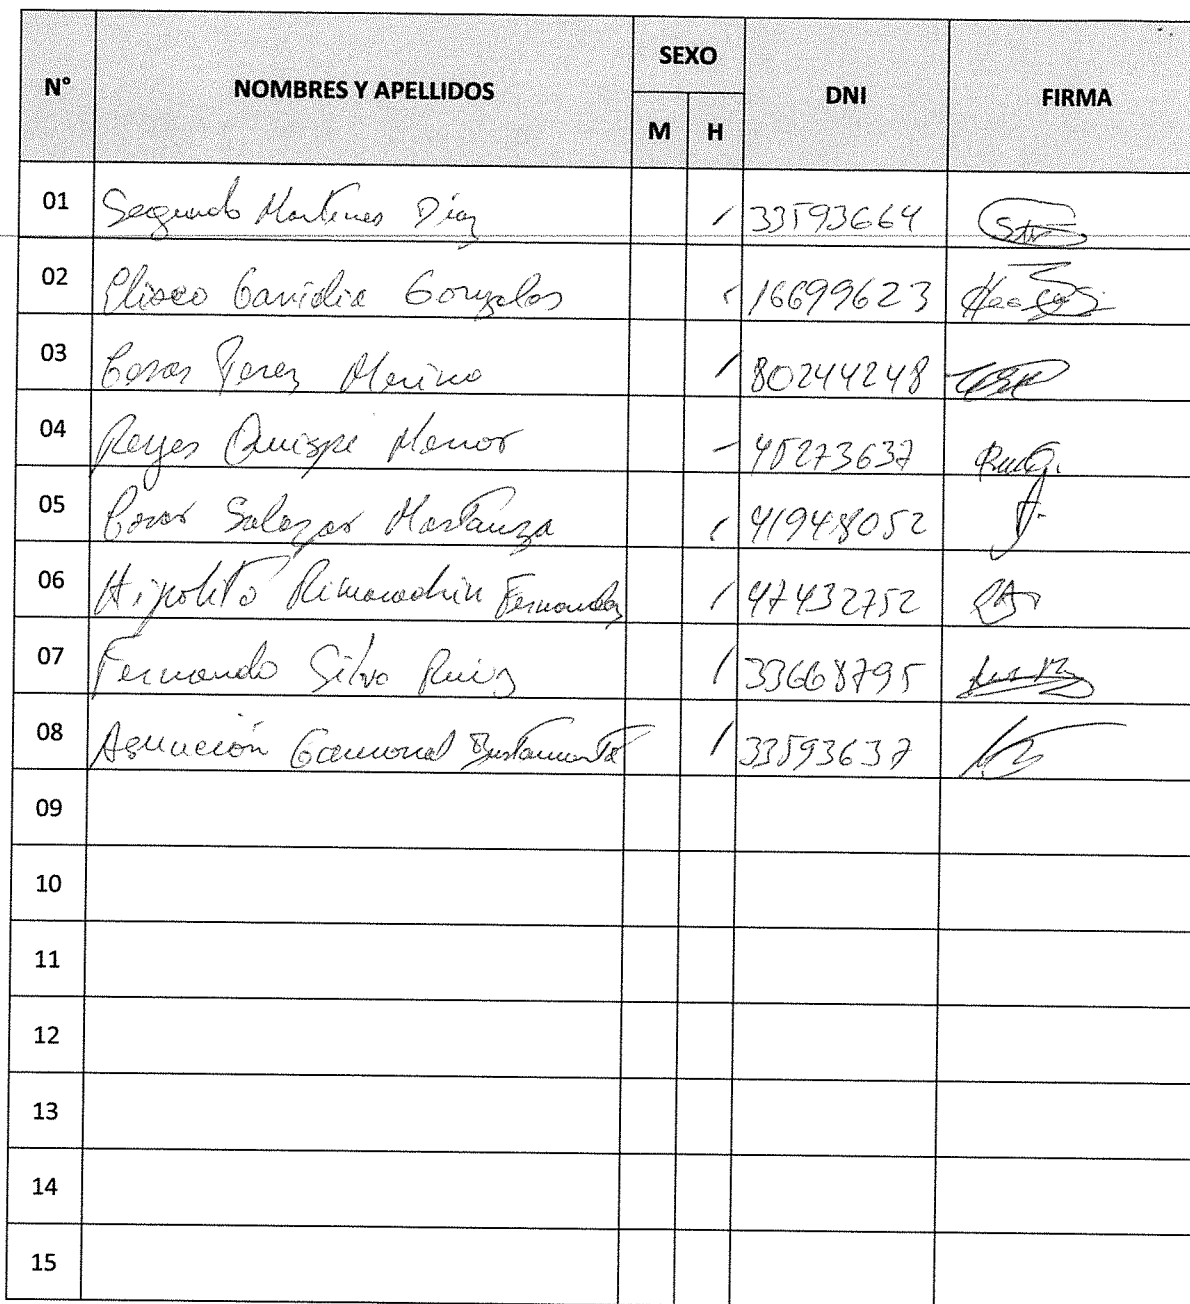 N° NOMBRES Y APELLIDOS SEXO DNI FIRMA
M H
01 Segundo Martines Díaz / 33593664
02 Eliseo Gavidia Gonzalos 16699623
03 Cesar Perez Merino / 80244248
04 Reyes Quispe Manor - 45273637
05 Cesar Salazar Mastanza / 41948052
06 Hipolito Rimarachin Fernandez / 47432752
07 Fernando Silva Ruiz / 33668795
08 Asunción Gamonal Bustamante / 33593637
09
10
11
12
13
14
15